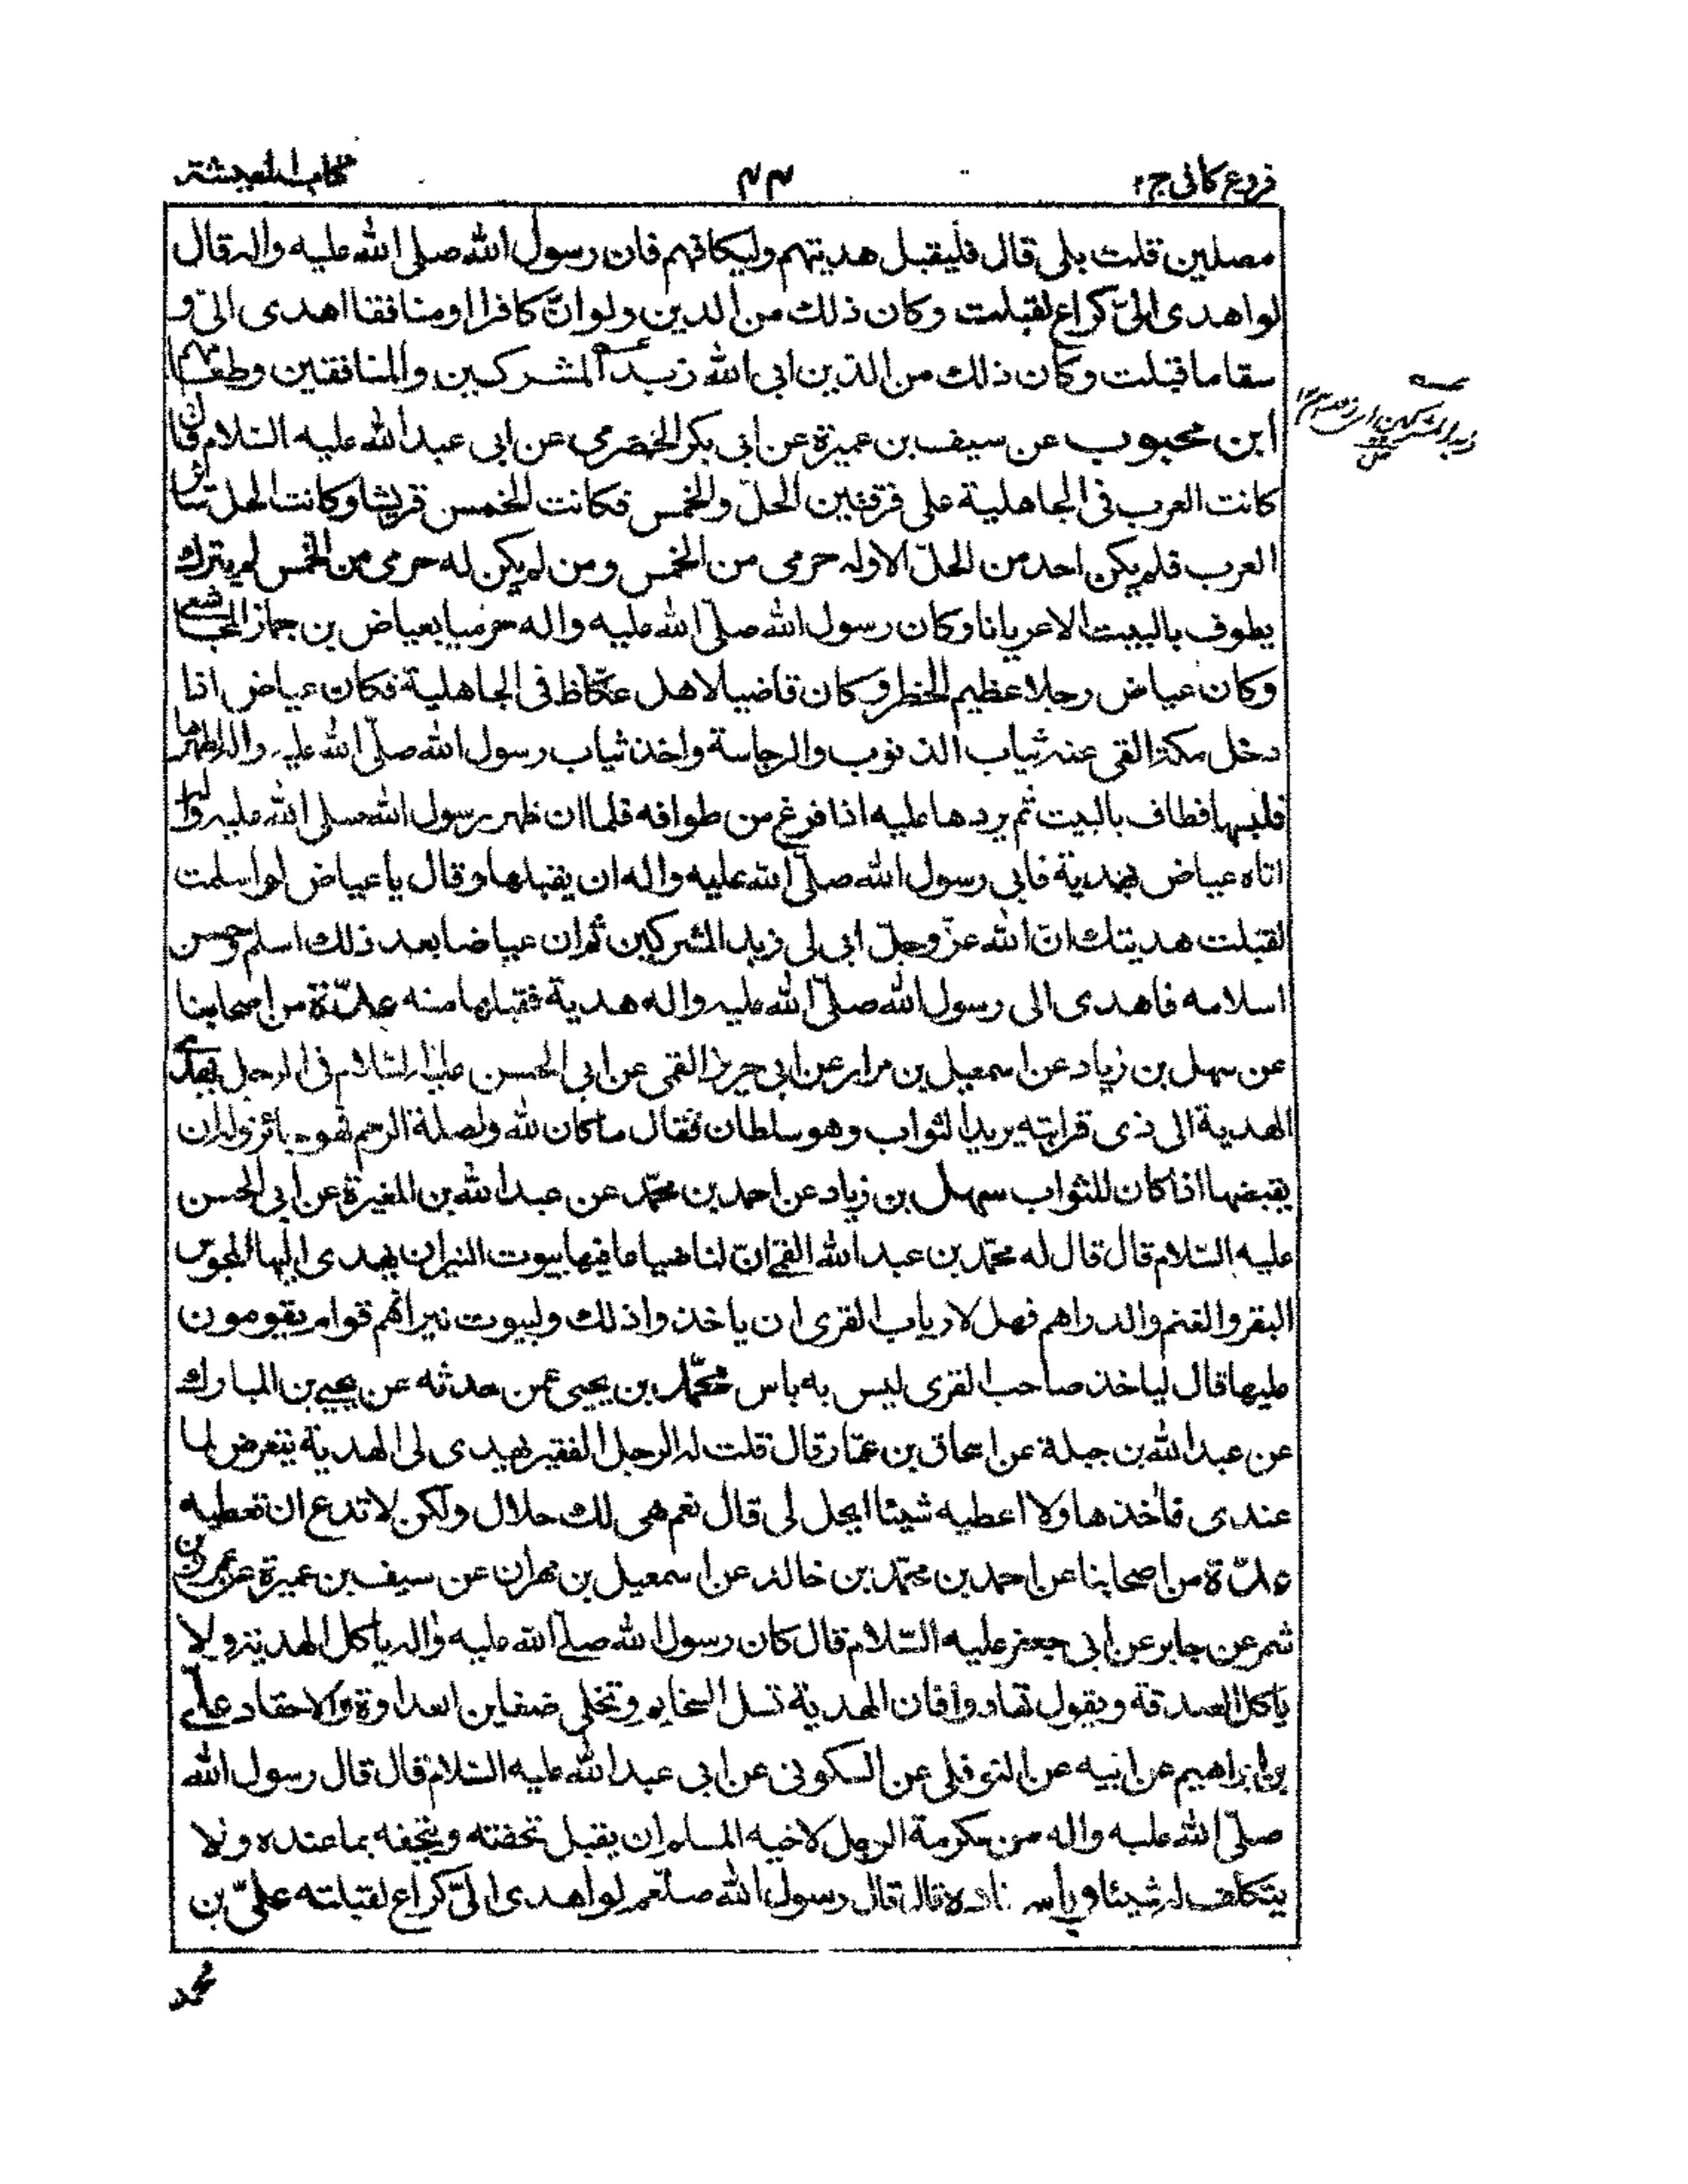 فروع كافى ج۲
۴۴
كتاب المعيشة
مصلين قلت بلى قال فليقبل هديتهم وليكافهم فان رسول الله صلى الله عليه واله قال
لو اهدى الىّ كراع لقبلت وكان ذلك من الدين ولو انّ كافرا او منافقا اهدى الىّ و
سقا ما قبلت وكان ذلك من الدين ابى الله زبد المشركين والمنافقين وطعامهم
ابن محبوب عن سيف بن عميرة عن ابى بكر الخضرمى عن ابى عبد الله عليه السلام قال
كانت العرب فى الجاهلية على فرقتين الحلّ والخمس فكانت الخمس قريشا وكانت الحل سائر
العرب فلم يكن احد من الحلّ الا وله حرمى من الخمس ومن لم يكن له حرمى من الخمس لم يترك
يطوف بالبيت الا عريانا وكان رسول الله صلّى الله عليه واله حرميا بعياض بن جماز المجاشعى
وكان عياض رجلا عظيم الخطر وكان قاضيا لاهل عكّاظ فى الجاهلية فكان عياض اذا
دخل مكة القى عنه ثياب الذنوب والرجاسة واخذ ثياب رسول الله صلّى الله عليه واله لطهرها
فلبسها فطاف بالبيت ثم يردها عليه اذا فرغ من طوافه فلما ان ظهر رسول الله صلى الله عليه واله
اتاه عياض بهدية فابى رسول الله صلّى الله عليه واله ان يقبلها وقال يا عياض لو اسلمت
لقبلت هديتك انّ الله عزّ وجلّ ابى لى زبد المشركين ثم ان عياضا بعد ذلك اسلم وحسن
اسلامه فاهدى الى رسول الله صلّى الله عليه واله هدية فقبلها منه عدّة من اصحابنا
عن سهل بن زياد عن اسمعيل بن مرار عن ابى جرير القمى عن ابى الحسن عليه السّلام فى الرجل يهدى
الهدية الى ذى قرابته يريد الثواب وهو سلطان فقال ما كان لله ولصلة الرحم فهو جائز وله ان
يقبضها اذا كان للثواب سهل بن زياد عن احمد بن محمّد عن عبد الله بن المغيرة عن ابى الحسن
عليه السّلام قال قال له محمّد بن عبد الله القمّى انّ لنا ضياعا فيها بيوت النيران يهدى اليها المجوس
البقر والغنم والدراهم فهل لارباب القرى ان ياخذوا ذلك ولبيوت نيرانهم قوام يقومون
عليها قال لياخذ صاحب القرى ليس به باس محمّد بن يحيى عمن حدثه عن يحيى بن المبارك
عن عبد الله بن جبلة عن اسحاق بن عمّار قال قلت له الرجل الفقير يهدى لى الهدية يتعرض لما
عندى فآخذها ولا اعطيه شيئا ايحل لى قال نعم هى لك حلال ولكن لا تدع ان تعطيه
عدّة من اصحابنا عن احمد بن محمّد بن خالد عن اسمعيل بن مهران عن سيف بن عميرة عن عمرو بن
شمر عن جابر عن ابى جعفر عليه السّلام قال كان رسول الله صلّى الله عليه واله ياكل الهدية ولا
ياكل الصدقة ويقول تهادوا فان الهدية تسل السخايم وتخلى ضغاين العداوة والاحقاد علىّ
بن ابراهيم عن ابيه عن النوفلى عن السكونى عن ابى عبد الله عليه السّلام قال قال رسول الله
صلّى الله عليه واله من مكرمة الرجل لاخيه المسلم ان يقبل تحفته ويتحفه بما عنده ولا
يتكلف له شيئا وباسناده قال قال رسول الله صلّعم لو اهدى الىّ كراع لقبلته علىّ بن
محمد